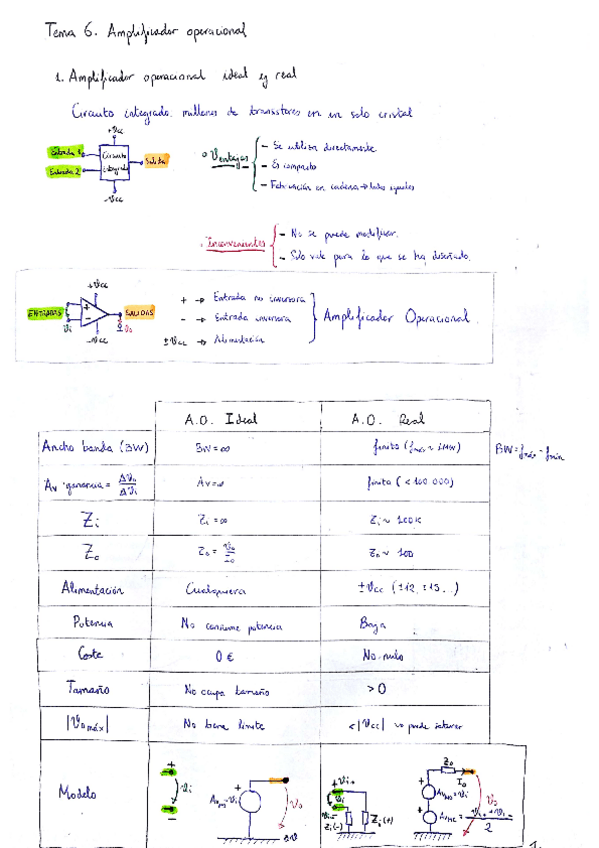 Tema 6. Amplificador operacional
1. Amplificador operacional ideal y real
Circuito integrado: millones de transistores en un solo cristal
+Vcc
Entrada 1
Entrada 2
Circuito
integrado
Salida
-Vcc
Ventajas
- Se utilizan directamente
- Es compacto
- Fabricación en cadena → todos iguales
Inconvenientes
- No se puede modificar.
- Solo vale para lo que se ha diseñado.
+Vcc
ENTRADAS
+
-
Vi
SALIDAS
Vo
-Vcc
+ → Entrada no inversora
- → Entrada inversora
±Vcc → Alimentación
Amplificador Operacional
A.O. Ideal A.O. Real
Ancho banda (BW) BW=∞ finito
BW= fmáx - fmin
Av ganancia = ΔVo/ΔVi Av=∞ finita (<100 000)
Zi Zi=∞ Zi ~ 100K
Zo Zo ~ 100
Alimentación Cualquiera ±Vcc (±12, ±15...)
Potencia No consume potencia Baja
Coste 0 € No nulo
Tamaño No ocupa tamaño >0
|Vo máx| No tiene límite <|Vcc| → puede saturar
Modelo
+
Vi
-
+
Vo
0V
+
Vi
Zi(-)
Zi(+)
Zo
Io
+
+
Vo
2